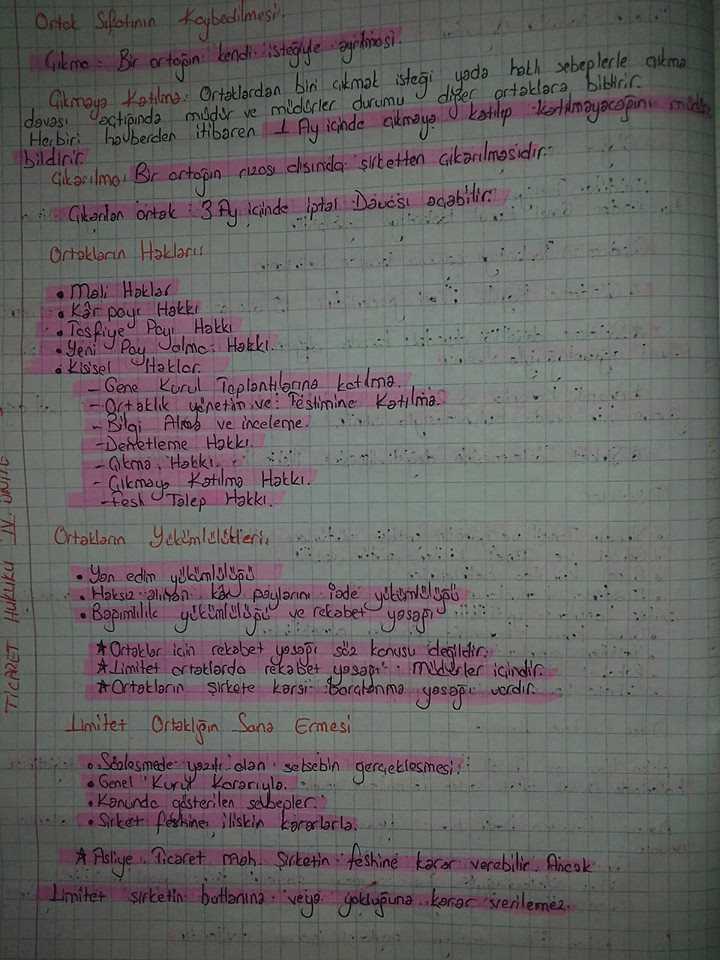 Ortak Sıfatının Kaybedilmesi.
Çıkma: Bir ortağın kendi isteğiyle ayrılması.
Çıkmaya Katılma: Ortaklardan biri çıkmak isteği yada haklı sebeplerle çıkma
davası açtığında müdür ve müdürler durumu diğer ortaklara bildirir.
Herbiri haberden itibaren 1 Ay içinde çıkmaya katılıp katılmayacağını müdüre
bildirir
Çıkarılma: Bir ortağın rızası dışında şirketten çıkarılmasıdır.
Çıkarılan ortak: 3 Ay içinde İptal Davası açabilir.
Ortakların Hakları:
• Mali Haklar
• Kâr payı Hakkı
• Tasfiye Payı Hakkı
• Yeni Pay alma Hakkı.
• Kişisel Haklar.
– Gene Kurul Toplantılarına katılma.
– Ortaklık yönetim ve Teslimine Katılma.
– Bilgi Alma ve inceleme.
– Denetleme Hakkı.
– Çıkma Hakkı.
– Çıkmaya Katılma Hakkı.
– Fesh Talep Hakkı.
Ortakların Yükümlülükleri:
• Yan edim yükümlülüğü
• Haksız alınan kâr paylarını iade yükümlülüğü
• Bağımlılık yükümlülüğü ve rekabet yasağı
★ Ortaklar için rekabet yasağı söz konusu değildir.
★ Limitet ortaklarda rekabet yasağı müdürler içindir.
★ Ortakların şirkete karşı Borçlanma yasağı vardır.
Limitet Ortaklığın Sona Ermesi
• Sözleşmede yazılı olan sebebin gerçekleşmesi.
• Genel Kurul Kararıyla.
• Kanunda gösterilen sebepler.
• Şirket feshine ilişkin kararlarla.
★ Asliye Ticaret Mah. Şirketin feshine karar verebilir. Ancak
Limitet şirketin butlanına veya yokluğuna karar verilemez.
TİCARET HUKUKU IV. ÜNİTE